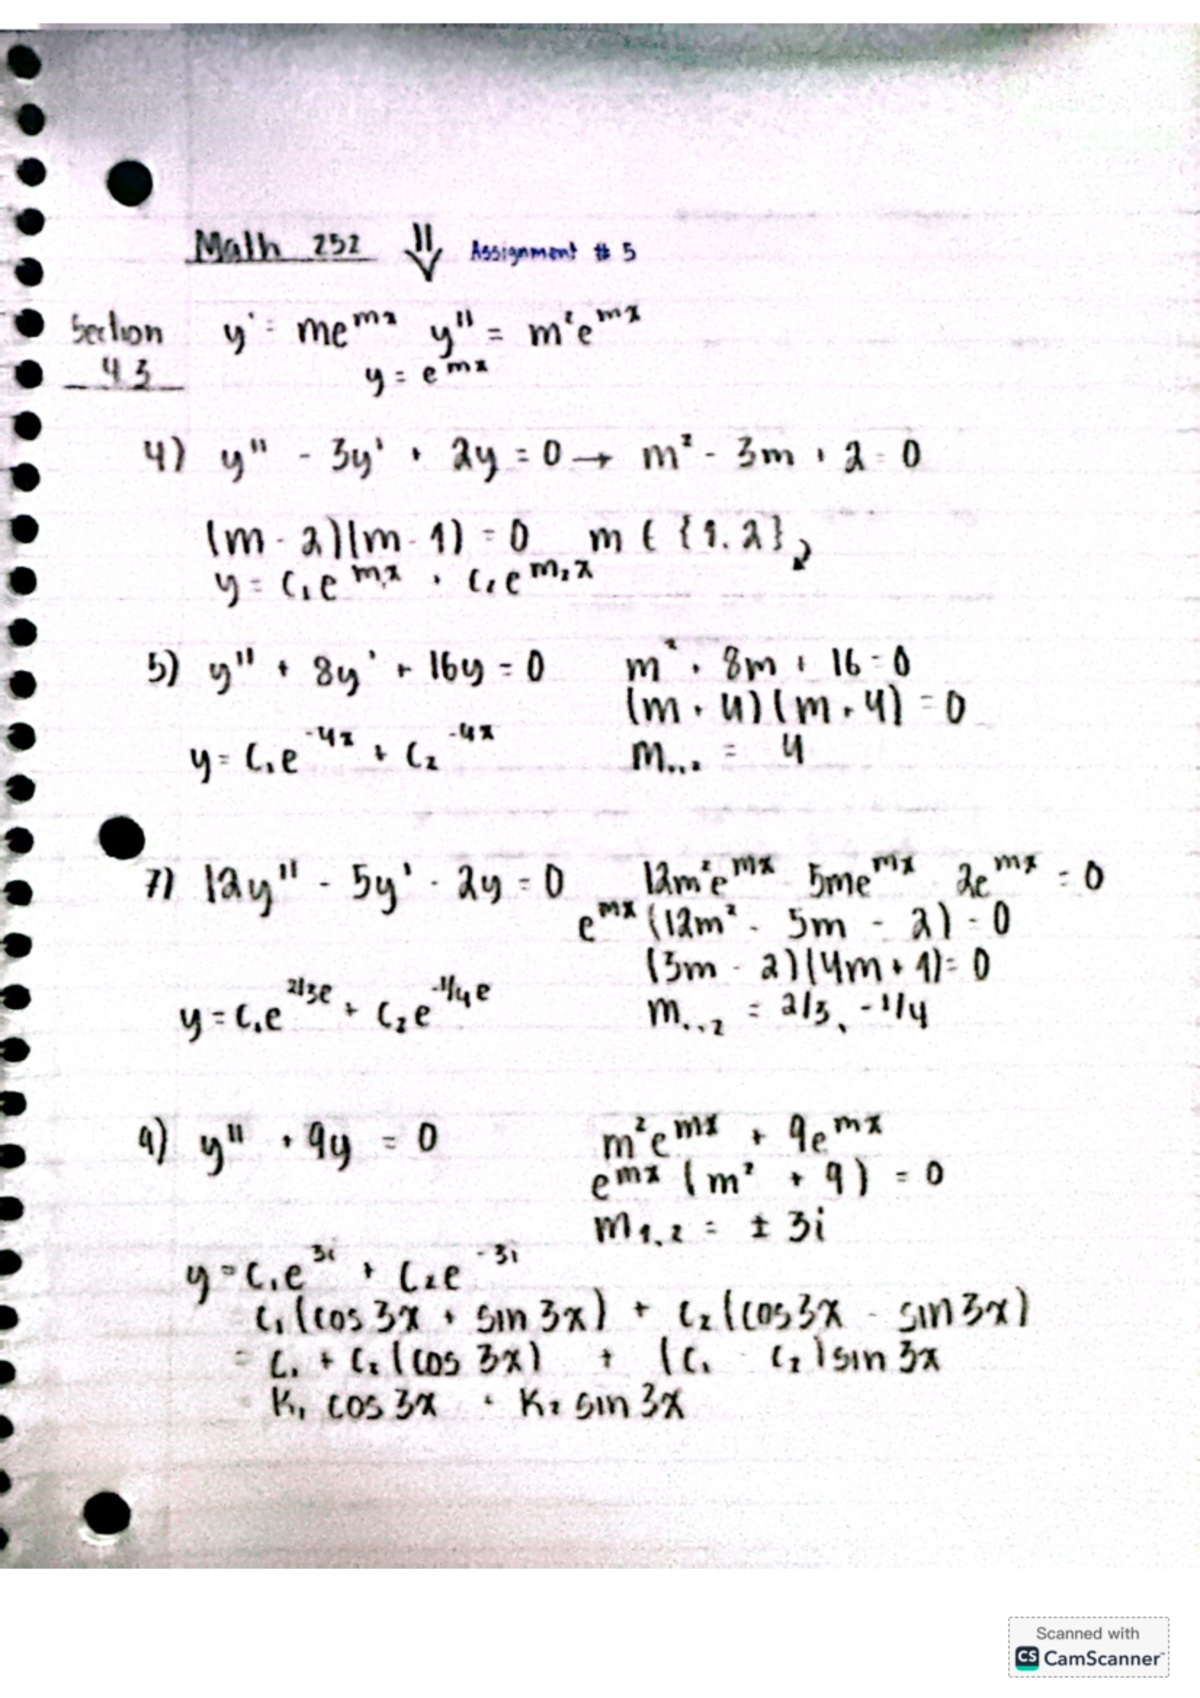 Math 252 ⇓ Assignment # 5
Section y' = me^mx y'' = m²e^mx
4.3 y = e^mx
4) y'' - 3y' + 2y = 0 → m² - 3m + 2 = 0
(m - 2)(m - 1) = 0 m ∈ {1, 2}
y = C₁e^m₁x + C₂e^m₂x
5) y'' + 8y' + 16y = 0 m² + 8m + 16 = 0
(m + 4)(m + 4) = 0
y = C₁e^-4x + C₂^-4x m₁,₂ = 4
7) 12y'' - 5y' - 2y = 0 12m²e^mx 5me^mx 2e^mx = 0
e^mx (12m² - 5m - 2) = 0
(3m - 2)(4m + 1) = 0
y = C₁e^2/3e + C₂e^-1/4e m₁,₂ = 2/3, -1/4
9) y'' + 9y = 0 m²e^mx + 9e^mx
e^mx (m² + 9) = 0
m₁,₂ = ± 3i
y = C₁e^3i + C₂e^-3i
C₁(cos 3x + sin 3x) + C₂(cos3x - sin3x)
= C₁ + C₂(cos 3x) + (C₁ - C₂)sin 3x
K₁ cos 3x + K₂ sin 3x
Scanned with
CS CamScanner